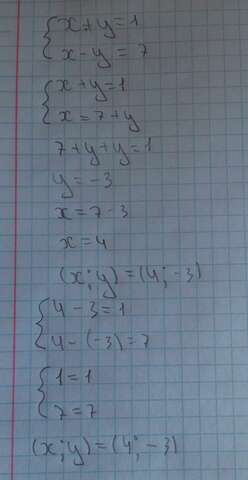 x + y = 1
x - y = 7
x + y = 1
x = 7 + y
7 + y + y = 1
y = -3
x = 7 - 3
x = 4
(x; y) = (4; -3)
4 - 3 = 1
4 - (-3) = 7
1 = 1
7 = 7
(x; y) = (4; -3)